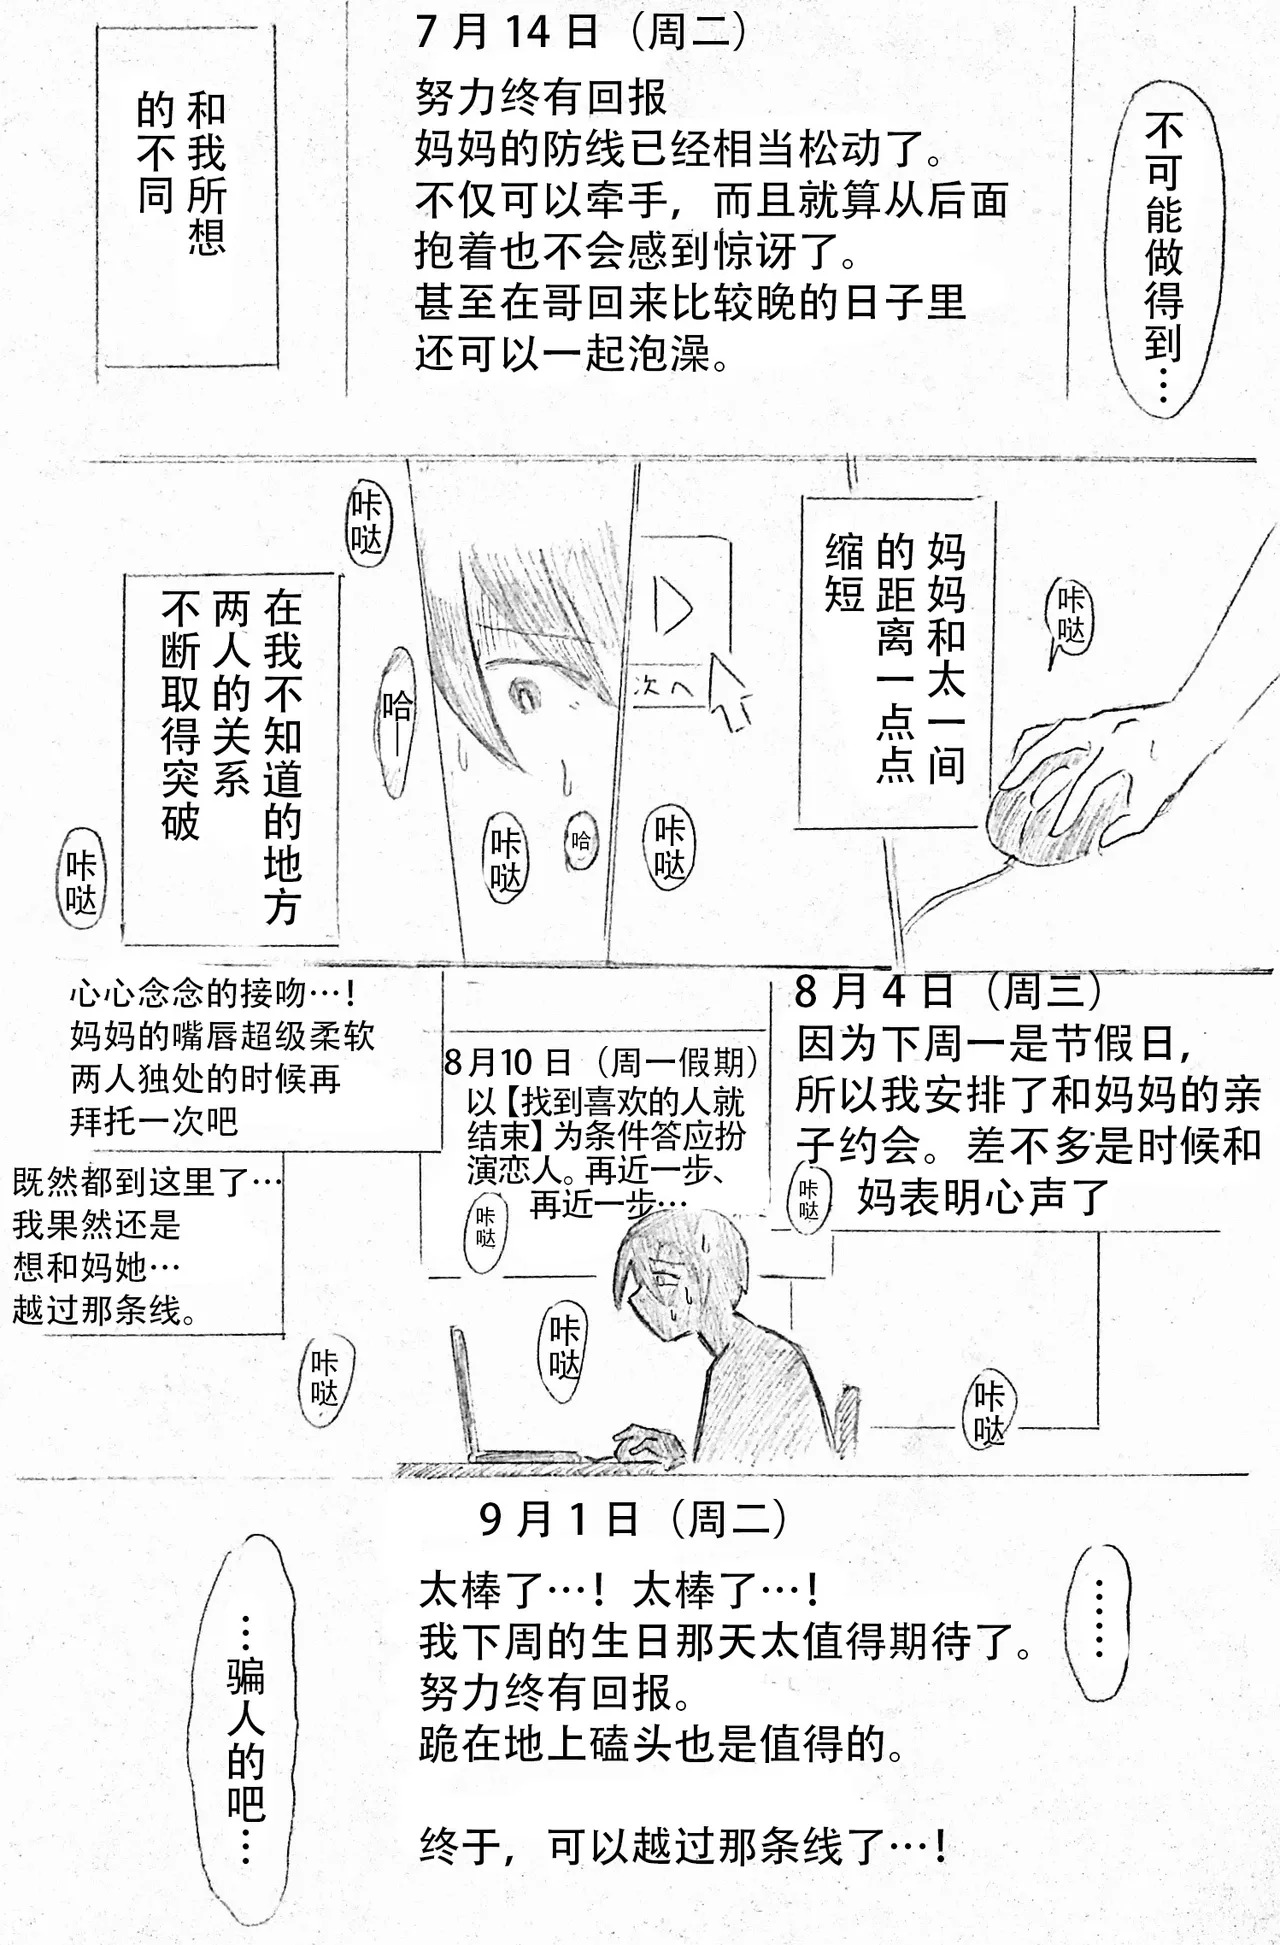 不可能做得到…
7月14日（周二）
努力终有回报
妈妈的防线已经相当松动了。
不仅可以牵手，而且就算从后面
抱着也不会感到惊讶了。
甚至在哥回来比较晚的日子里
还可以一起泡澡。
和我所想
的不同
咔哒
妈妈和太一间
的距离一点点
缩短
次へ
咔哒
哈
咔哒
咔哒
哈—
在我不知道的地方
两人的关系
不断取得突破
咔哒
8月4日（周三）
因为下周一是节假日，
所以我安排了和妈妈的亲
子约会。差不多是时候和
妈表明心声了
咔哒
8月10日（周一假期）
以【找到喜欢的人就
结束】为条件答应扮
演恋人。再近一步、
再近一步…
咔哒
心心念念的接吻…！
妈妈的嘴唇超级柔软
两人独处的时候再
拜托一次吧
既然都到这里了…
我果然还是
想和妈她…
越过那条线。
咔哒
咔哒
咔哒
……
9月1日（周二）
太棒了…！太棒了…！
我下周的生日那天太值得期待了。
努力终有回报。
跪在地上磕头也是值得的。
终于，可以越过那条线了…！
…骗人的吧…